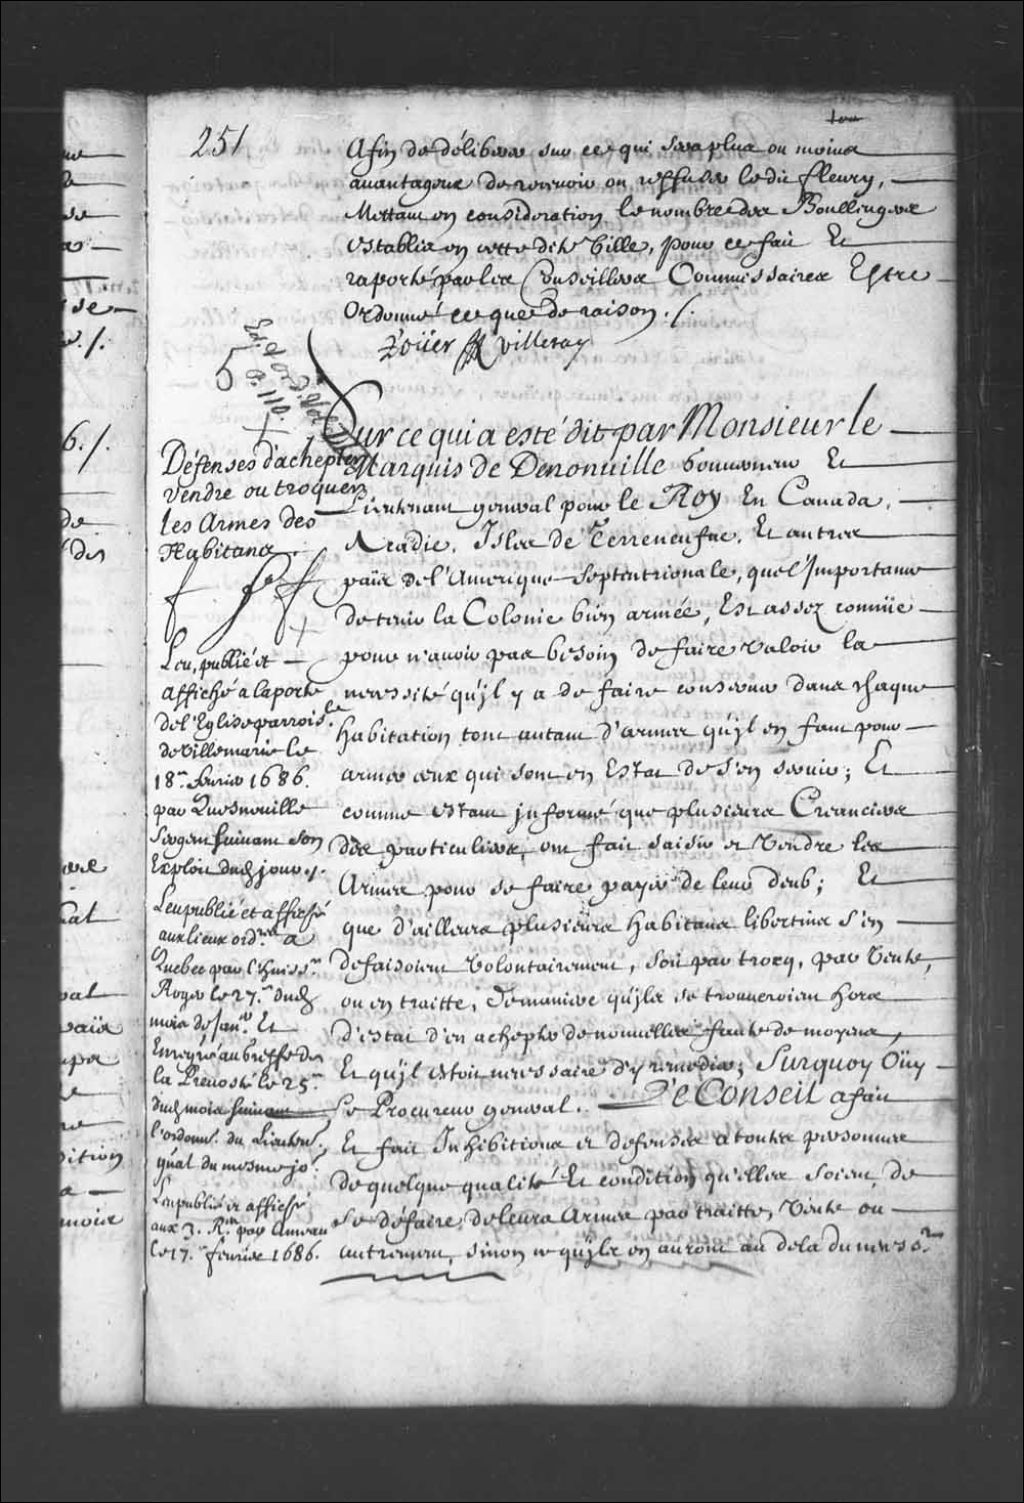 251
Afin de déliberer sur ce qui sera plus ou moins
auantageux de receuoir ou reffuser ledit fleury,
Mettant en consideration le nombre des Boullengers
establis en cette dite Ville, pour ce fait Et
raporté par les Conseillers Commissaires Estre
Ordonné ce que de raison ./.
Villeray
5
Ed. & Ord.
P. 110.
Deffenses d'achepter
vendre ou troquer
les Armes des
Habitans
Sur ce qui a esté dit par Monsieur le
Marquis de Denonuille Gouuerneur Et
Lieutenant general pour le Roy En Canada,
Acadie, Isles de Terreneufue, Et autres
païs de l'Amerique Septentrionale, que l'Importance
de tenir la Colonie bien armée, Est assez connüe
pour n'auoir pas besoin de faire valoir la
necessité qu'jl y a de faire conseruer dans chaque
habitation tout autant d'armes qu'jl en faut pour
armer ceux qui sont en Estat de s'en seruir; Et
comme estant jnformé que plusieurs Creanciers
des particuliers, ont fait saisir et Vendre les
Armes pour se faire payer de leur deub; Et
que d'ailleurs plusieurs habitans libertins s'en
defaisoient volontairement, soit par trocq, par Vente,
ou en traitte, de maniere qu'jls se trouueroient hors
d'estat d'en achepter de nouuelles faute de moyens,
Et qu'jl estoit necessaire d'y remedier; Surquoy Oüy
Le Procureur general. Le Conseil a fait
Et fait Inhibitions et defenses a toutes personnes
de quelque qualité Et condition qu'elles soient, de
se défaire de leurs Armes par traitte, Vente ou
autrement, sinon ce qu'jls en auront au dela du necess.re
Leu, publié et
affiché a la porte
de l'Eglise parrois.le
de Villemarie le
18.e feurier 1686.
par Quesneuille
Sergent suiuant son
Exploit dud. jour ./.
Leu publié et affiché
aux lieux ord.res a
Quebec par l'huiss.r
Roger le 27.e dud.
mois de Jan.er Et
Enregré au greffe de
la Preuosté le 25.e
dud. mois suiuant
l'ordonn.ce du Lieuten.t
gñal du mesme jo.r
Leu publié et affiché
aux 3. R.es par Ameau
le 17.e feurier 1686.